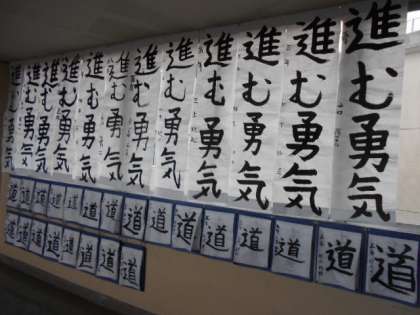 進む勇気
進む勇気
進む勇気
進む勇気
進む勇気
進む勇気
進む勇気
進む勇気
進む勇気
進む勇気
進む勇気
進む勇気
道 道 道 道 道 道 道 道 道 道 道 道 道 道 道
道 道 道 道 道 道 道 道